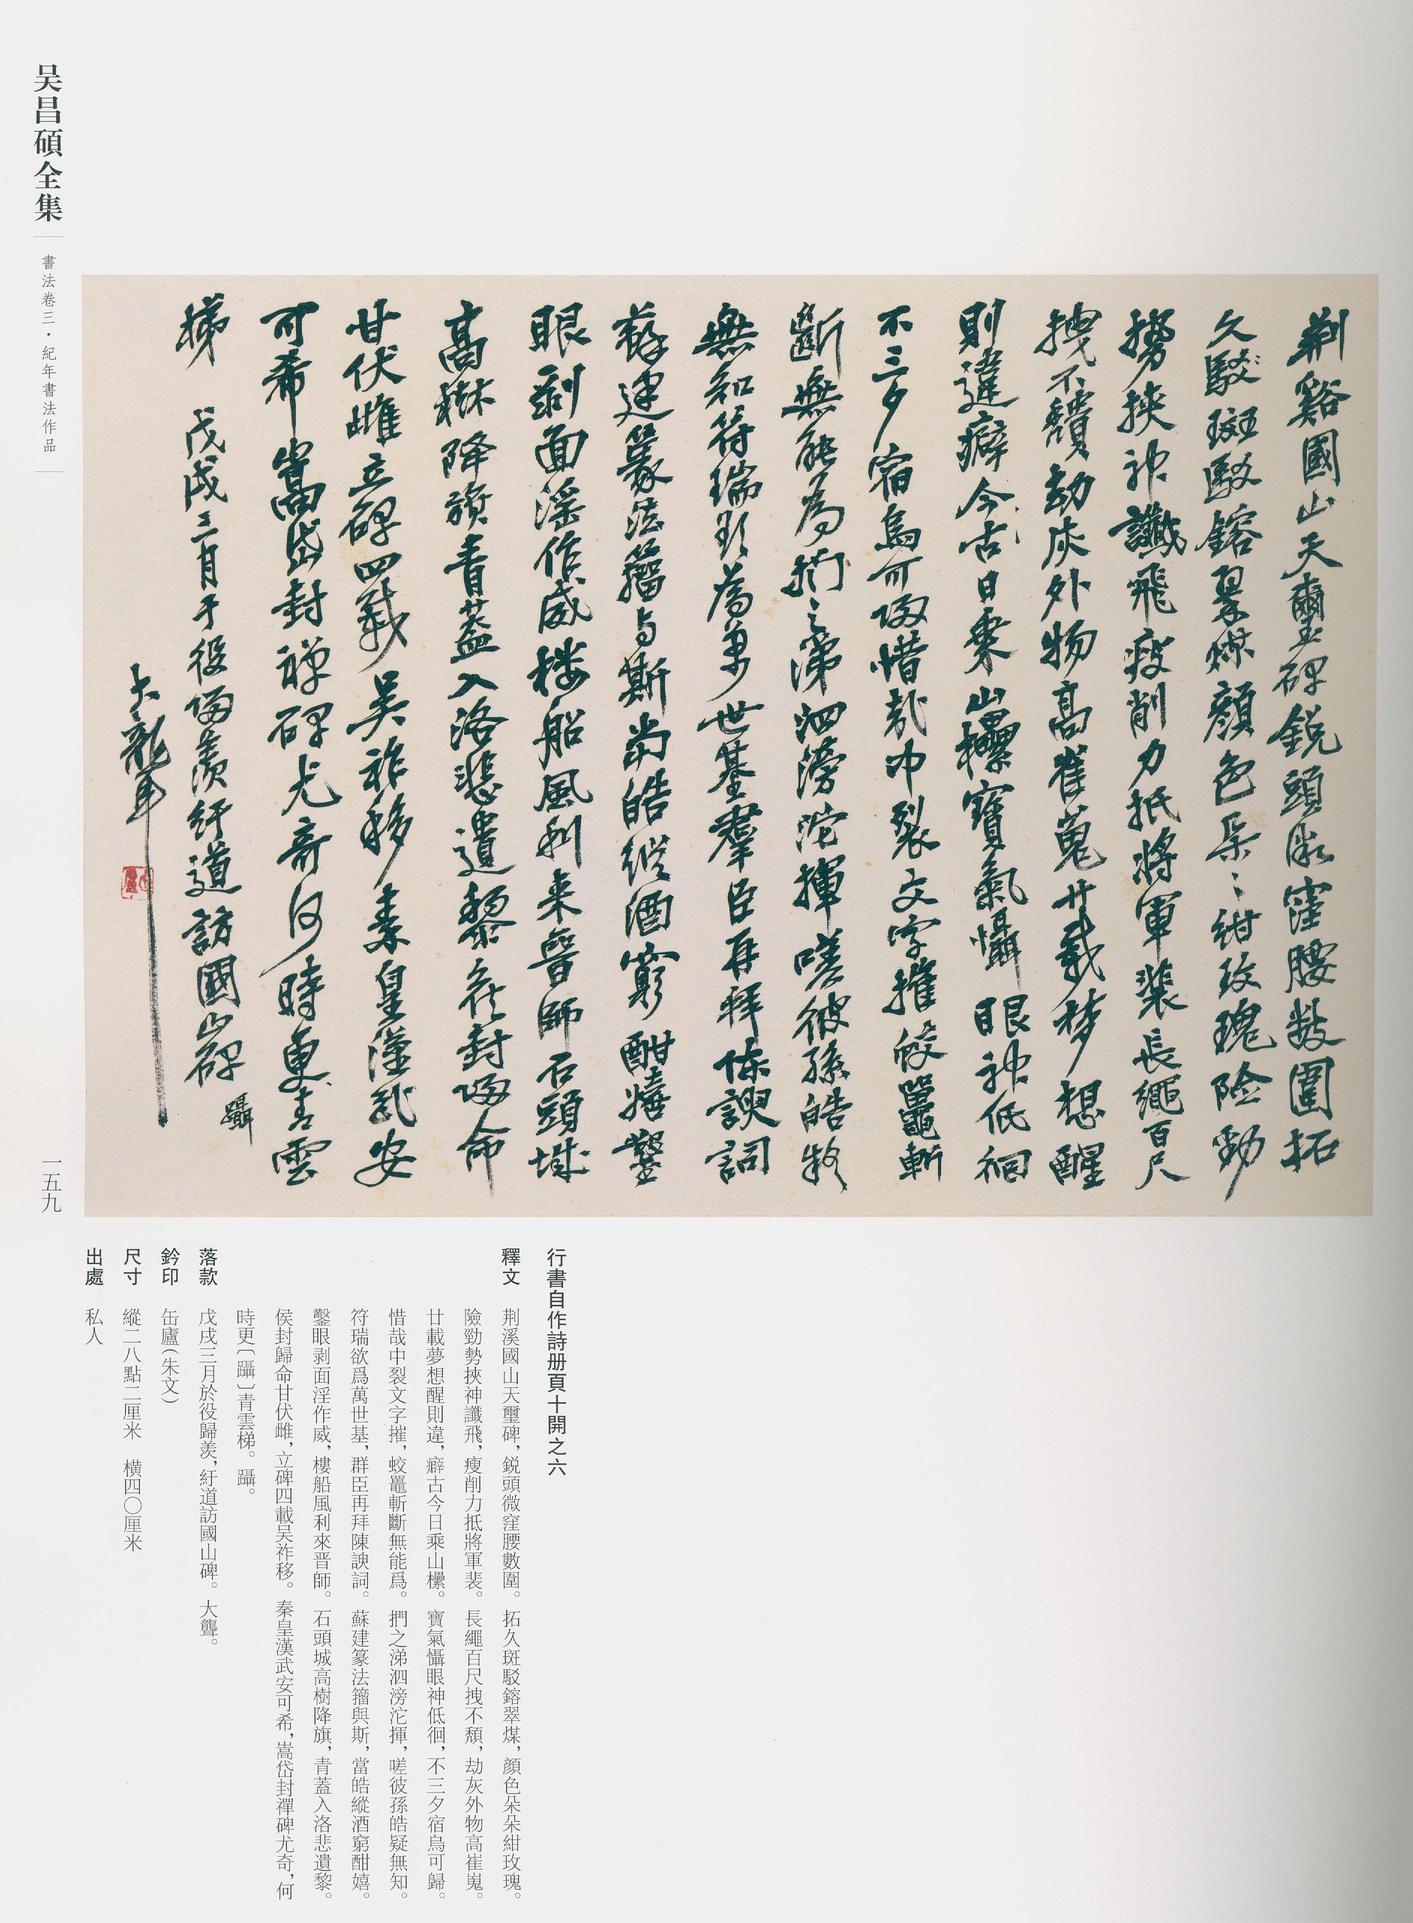 吴昌碩全集
書法卷三·紀年書法作品
一五九
荆谿國山天璽碑銳頭微窪腰數圍拓
久駁斑駁鎔翠煤顏色朵〻紺玫瑰險勁
勢挾神讖飛瘦削力抵將軍裴長繩百尺
拽不頽劫灰外物高崔嵬廿載夢想醒
則違癖今古日乘山欙寶氣懾眼神低徊
不三夕宿烏可歸惜哉中裂文字摧蛟鼉斬
斷無能為捫之涕泗滂沱揮嗟彼孫皓疑
無知符瑞欲為萬世基羣臣再拜陳諛詞
蘇建篆法籀与斯當皓縱酒窮酣嬉鑿
眼剥面淫作威楼船風利来晉師石頭城
高樹降旗青蓋入洛悲遺黎矦封歸命
甘伏雌立碑四載吳祚移秦皇漢武安
可希嵩岱封禪碑尤奇何時更青雲
梯 戊戌三月于役歸羨紆道訪國山碑 躡
大聾
行書自作詩册頁十開之六
釋文 荆溪國山天璽碑，鋭頭微窪腰數圍。拓久斑駁鎔翠煤，顔色朵朵紺玫瑰。
險勁勢挾神讖飛，瘦削力抵將軍裴。長繩百尺拽不頽，劫灰外物高崔嵬。
廿載夢想醒則違，癖古今日乘山欙。寶氣懾眼神低徊，不三夕宿烏可歸。
惜哉中裂文字摧，蛟鼉斬斷無能爲。捫之涕泗滂沱揮，嗟彼孫皓疑無知。
符瑞欲爲萬世基，群臣再拜陳諛詞。蘇建篆法籀與斯，當皓縱酒窮酣嬉。
鑿眼剥面淫作威，樓船風利來晋師。石頭城高樹降旗，青蓋入洛悲遺黎。
侯封歸命甘伏雌，立碑四載吴祚移。秦皇漢武安可希，嵩岱封禪碑尤奇，何
時更〔躡〕青雲梯。躡。
落款 戊戌三月於役歸羨，紆道訪國山碑。大聾。
鈐印 缶廬（朱文）
尺寸 縱二八點二厘米 横四〇厘米
出處 私人